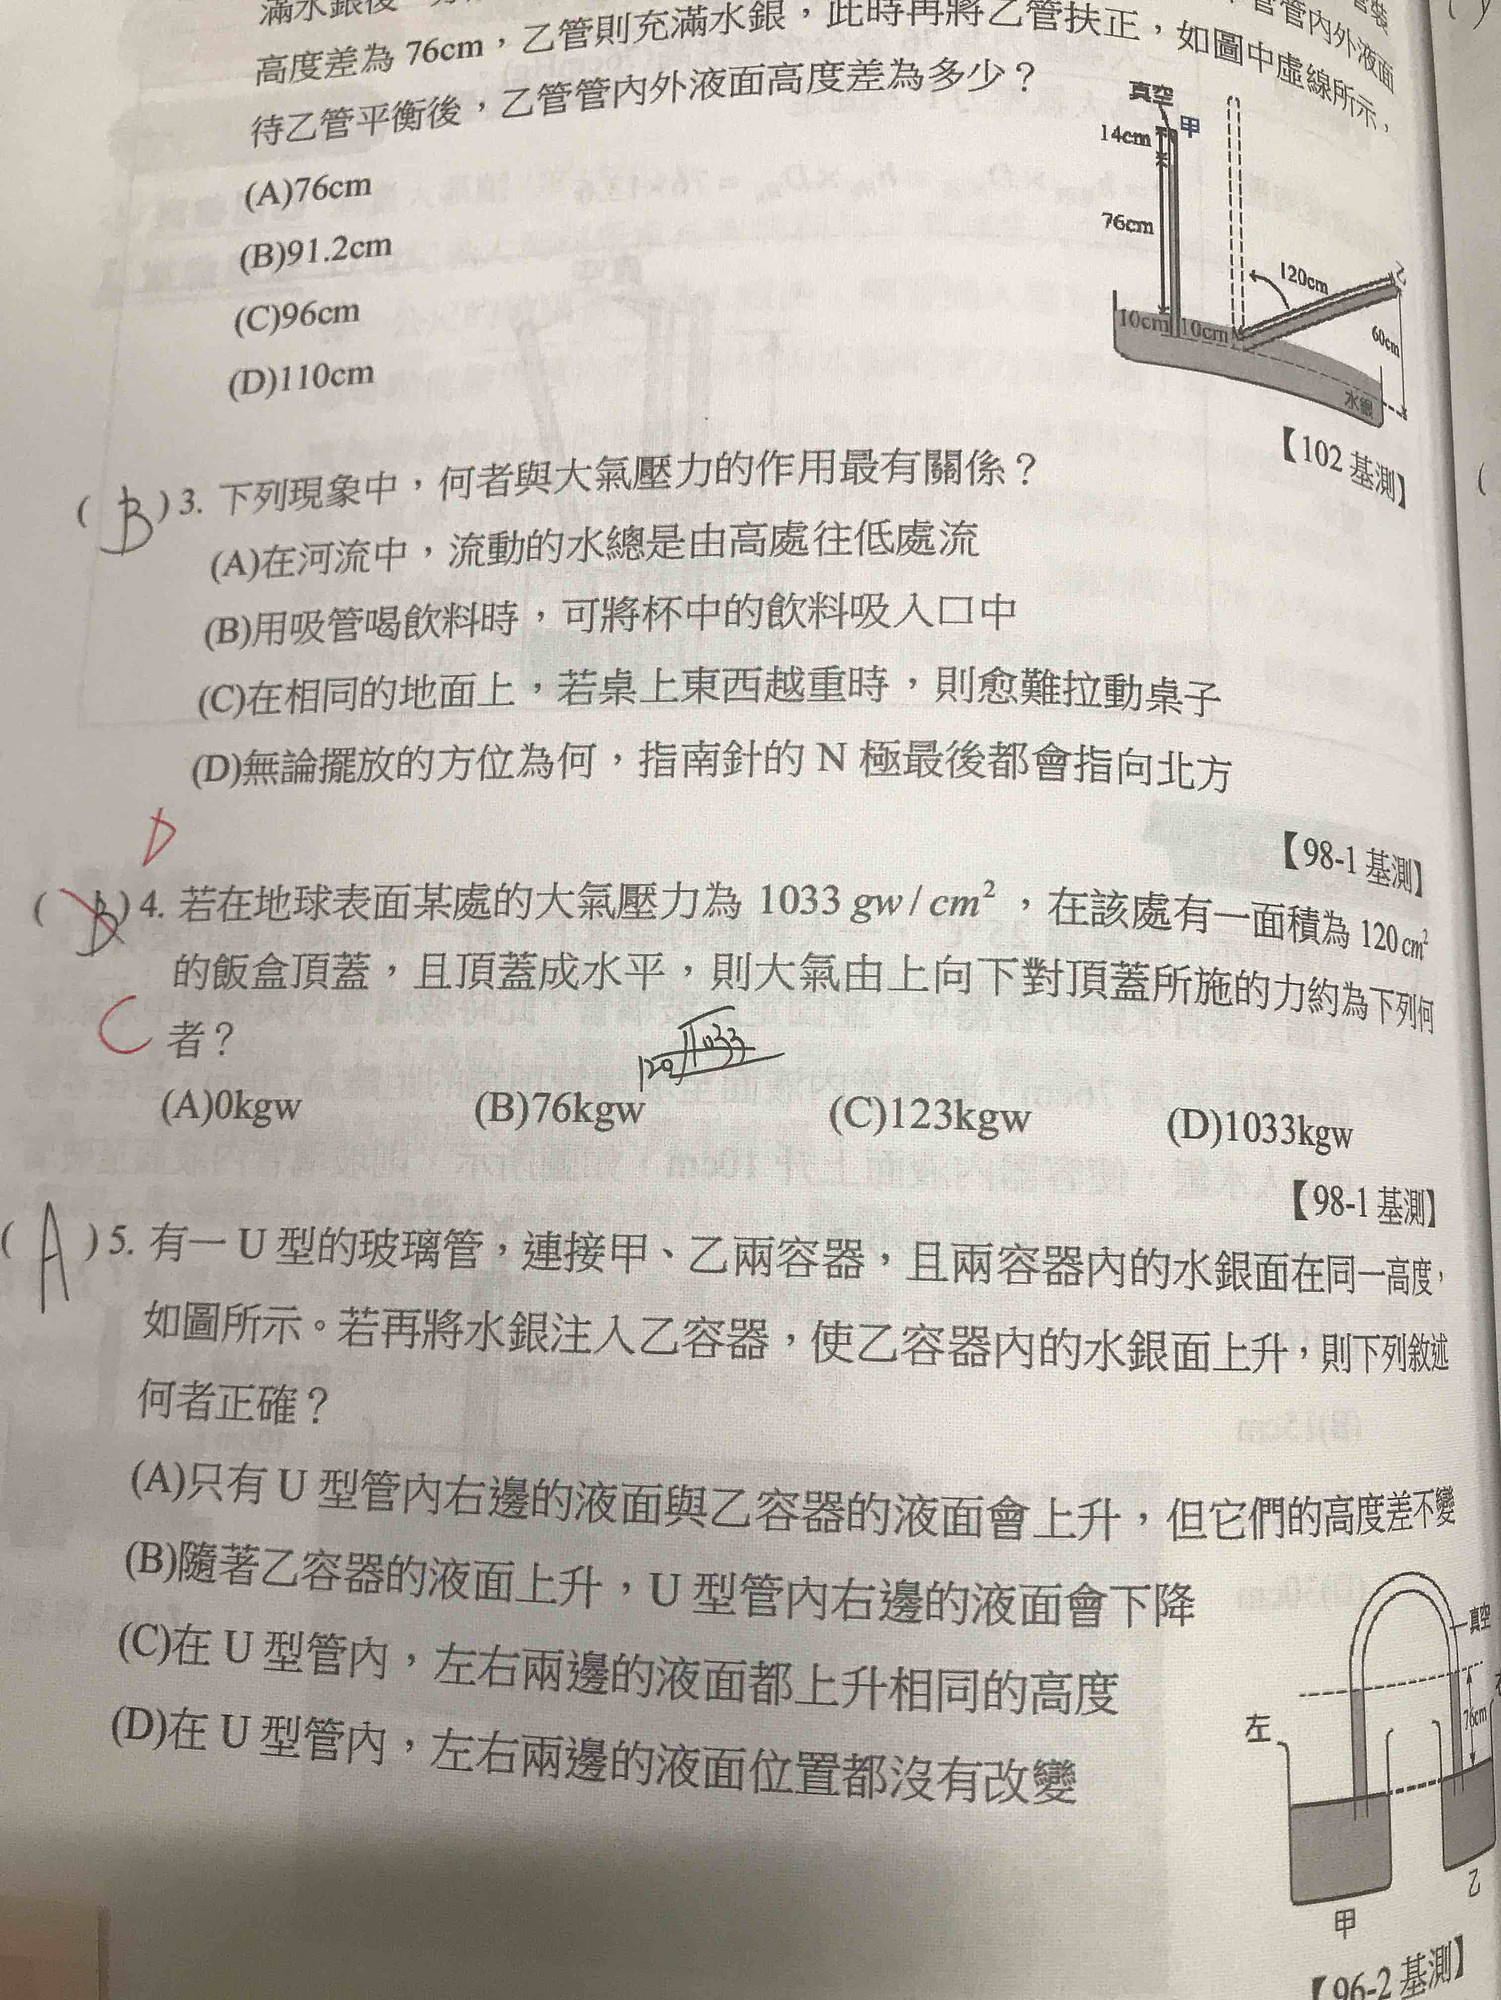 滿水銀後
管裝
高度差為 76cm，乙管則充滿水銀，此時再將乙管扶正，如圖中虛線所示，
管管內外液面
待乙管平衡後，乙管管內外液面高度差為多少？
(A)76cm
(B)91.2cm
(C)96cm
(D)110cm
真空
14cm
甲
76cm
120cm
乙
10cm
10cm
60cm
水銀
【102 基測】
(B)3. 下列現象中，何者與大氣壓力的作用最有關係？
(A)在河流中，流動的水總是由高處往低處流
(B)用吸管喝飲料時，可將杯中的飲料吸入口中
(C)在相同的地面上，若桌上東西越重時，則愈難拉動桌子
(D)無論擺放的方位為何，指南針的 N 極最後都會指向北方
【98-1 基測】
D
(B)4. 若在地球表面某處的大氣壓力為 1033 gw/cm²，在該處有一面積為 120cm²
的飯盒頂蓋，且頂蓋成水平，則大氣由上向下對頂蓋所施的力約為下列何
C
者？
120 1033
(A)0kgw (B)76kgw (C)123kgw (D)1033kgw
【98-1 基測】
(A)5. 有一 U 型的玻璃管，連接甲、乙兩容器，且兩容器內的水銀面在同一高度，
如圖所示。若再將水銀注入乙容器，使乙容器內的水銀面上升，則下列敘述
何者正確？
(A)只有 U 型管內右邊的液面與乙容器的液面會上升，但它們的高度差不變
(B)隨著乙容器的液面上升，U 型管內右邊的液面會下降
(C)在 U 型管內，左右兩邊的液面都上升相同的高度
(D)在 U 型管內，左右兩邊的液面位置都沒有改變
真空
左
76cm
甲
乙
【96-2 基測】